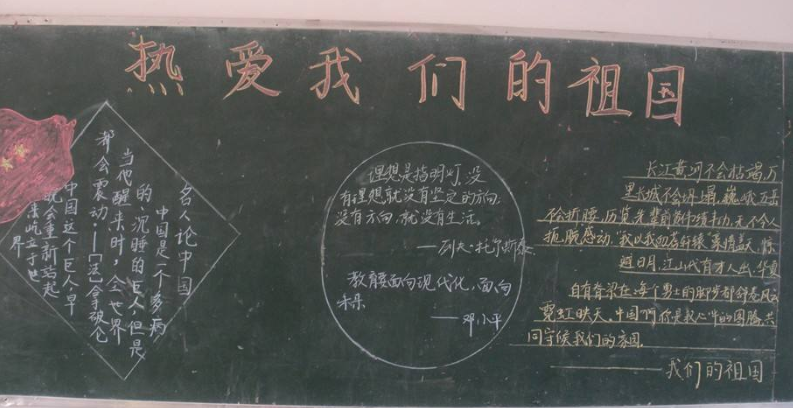 热爱我们的祖国
名人论中国
中国是一个多病
的沉睡的巨人,但是
当代醒来时,全世界
都会震动.——[法]拿破仑
中国这个巨人早
就会重新站起
屹立于世
界
理想是指明灯,没
有理想就没有坚定的方向
没有方向,就没有生活。
——列夫·托尔斯泰
教育面向现代化,面向
未来
——邓小平
长江黄河不会枯竭万
里长城不会坍塌,巍峨万古
不会折腰,历览先辈 无不令人
扼腕感动."我以我血荐轩辕"豪情盖天,
避日月,江山代有才人出,华夏
自有脊梁在,每个勇士的脚步都
霓虹映天,中国啊你是我心中的图腾,共
同守候我们的家园.
——我们的祖国